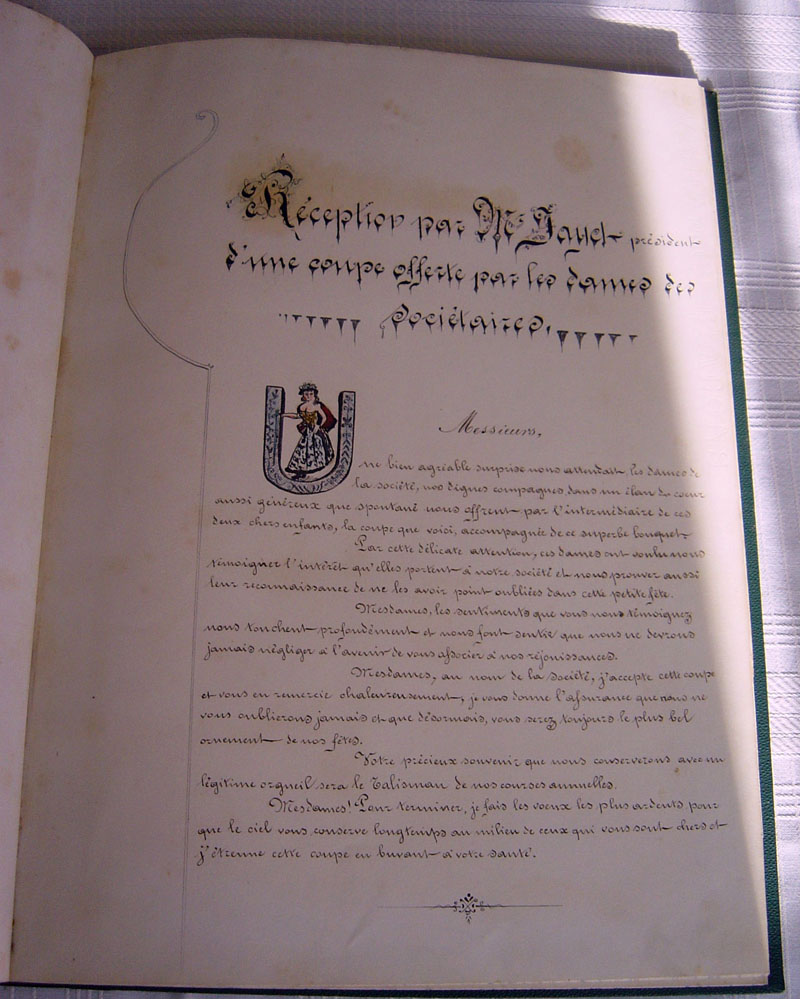 Réception par Mr Jayet président
d'une coupe offerte par les dames des
sociétaires.
Messieurs,
Une bien agréable surprise nous attendait, les dames de
la société, nos dignes compagnes, dans un élan du coeur
aussi généreux que spontané nous offrent par l'intermédiaire de ces
deux chers enfants, la coupe que voici, accompagnée de ce superbe bouquet.
Par cette délicate attention, ces dames ont voulu nous
témoigner l'intérêt qu'elles portent à notre société et nous prouver aussi
leur reconnaissance de ne les avoir point oubliées dans cette petite fête.
Mesdames, les sentiments que vous nous témoignez
nous touchent profondément et nous font sentir que nous ne devrons
jamais négliger à l'avenir de vous associer à nos réjouissances.
Mesdames, au nom de la société, j'accepte cette coupe
et vous en remercie chaleureusement, je vous donne l'assurance que nous ne
vous oublierons jamais et que désormais, vous serez toujours le plus bel
ornement de nos fêtes.
Votre précieux souvenir que nous conserverons avec un
légitime orgueil sera le Talisman de nos courses annuelles.
Mesdames! Pour terminer, je fais les voeux les plus ardents pour
que le ciel vous conserve longtemps au milieu de ceux qui vous sont chers et
j'étrenne cette coupe en buvant à votre santé.